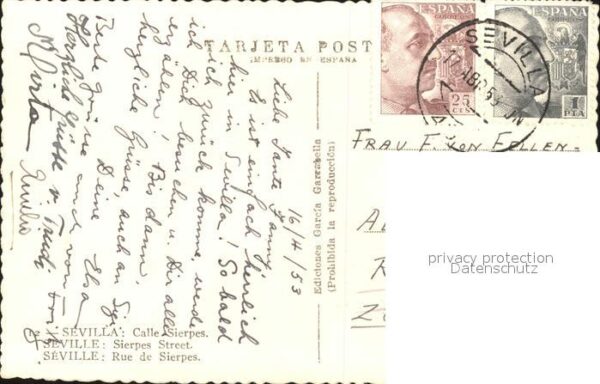 ESPAÑA
CORREOS
25
CTS
ESPAÑA
CORREOS
1
PTA
SEVILLA
17 ABR 53
TARJETA POST
IMPRESO EN ESPAÑA
FRAU F. VON FELLEN-
privacy protection
Datenschutz
Ediciones García Garrabella
(Prohibida la reproducción)
16/4/53
Liebe Tante Fanny
Es ist einfach herrlich
hier in Sevilla! So bald
ich zurück komme, werde
ich Dich besuchen u. Dir alles
erzählen. Bis dann,
herzliche Grüsse, auch an
Deine Elsa
auch von
Herzliche Grüsse v. Trudi
SEVILLA: Calle Sierpes.
SEVILLE: Sierpes Street.
SÉVILLE: Rue de Sierpes.